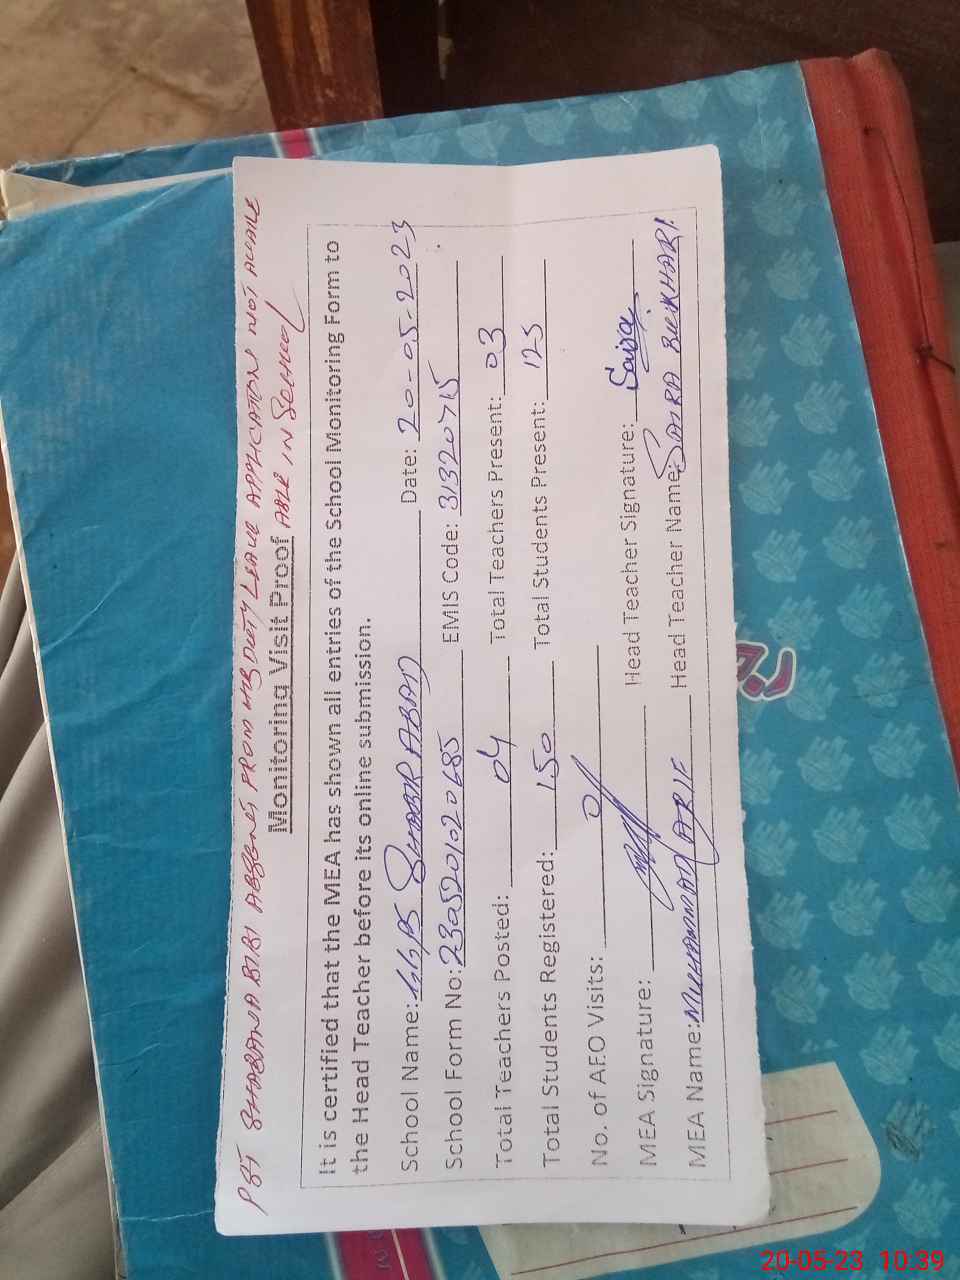 PST SHABANA BIBI ABSENT FROM HER DUTY LEAVE APPLICATION NOT AVAILE
ABLE IN SCHOOL
Monitoring Visit Proof
It is certified that the MEA has shown all entries of the School Monitoring Form to
the Head Teacher before its online submission.
School Name: GGPS SHABIR ABAD Date: 20-05-2023
School Form No: 2305201020685 EMIS Code: 31320715
Total Teachers Posted: 04 Total Teachers Present: 03
Total Students Registered: 150 Total Students Present: 125
No. of AEO Visits: 0
MEA Signature: Head Teacher Signature: Saira
MEA Name: MUHAMMAD ARIF Head Teacher Name: SAIRA BUKHARI
20-05-23 10:39